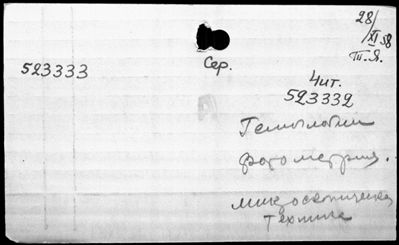 28/XI 58
Т.Я.
Сер.
523333
Чит.
523332
Гемоглобин
фотометрия.
микроскопическая
техника